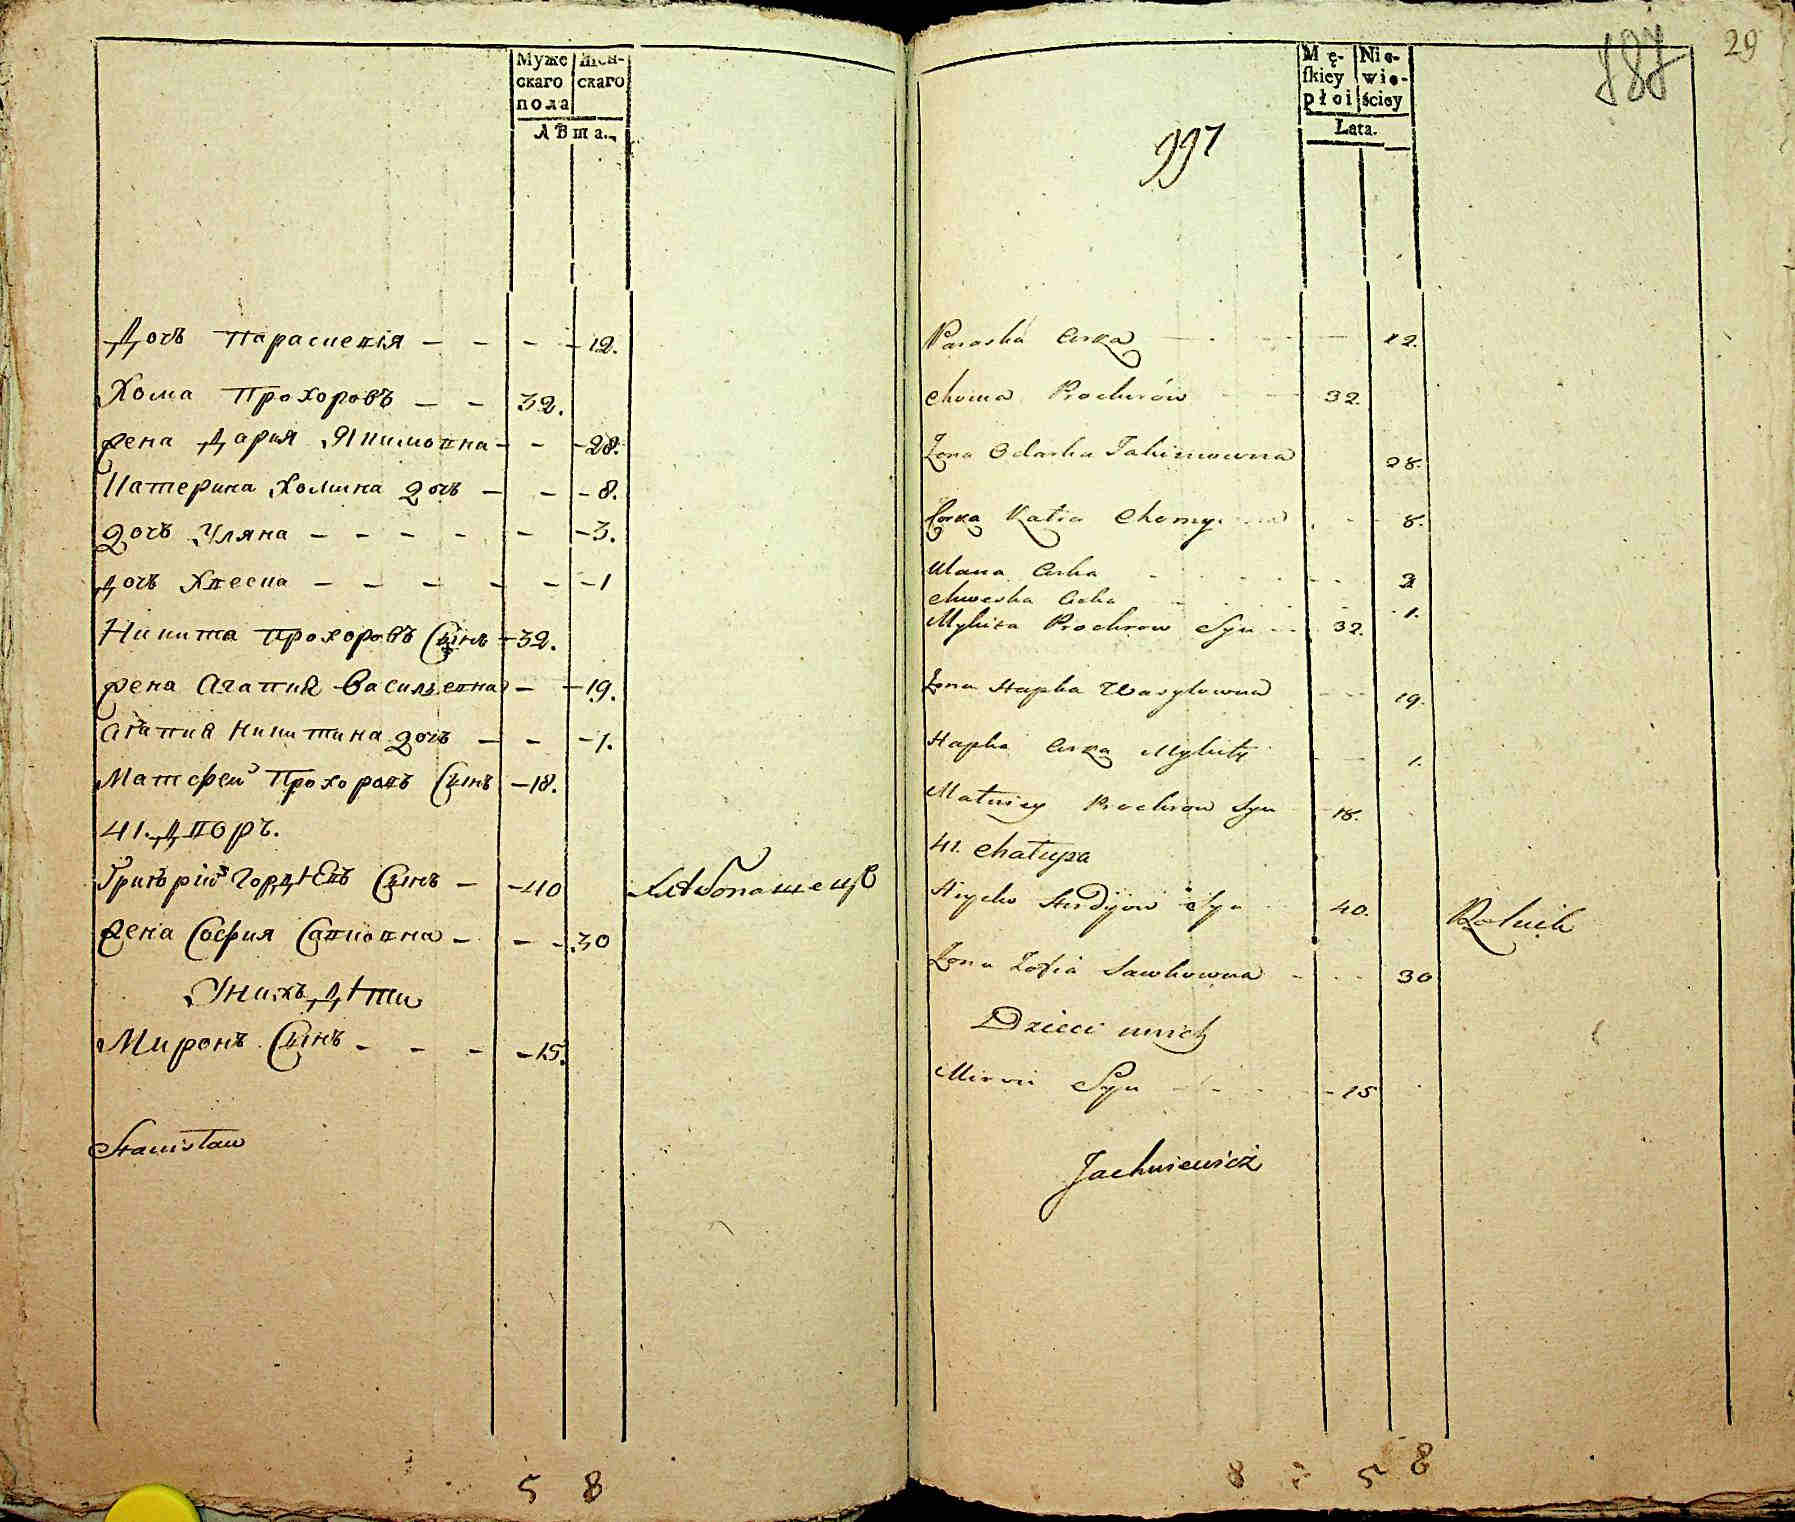 Муже
скаго
пола
Жен-
скаго
лѣта.
Дочь Параскевія - - - - 12.
Хома Прохоровъ - - 32.
жена Дария Якимовна - - - 28.
Катерина Хомина дочь - - - 8.
дочь Уляна - - - - - - 3.
дочь Хвеска - - - - - - 1
Никита Прохоровъ Сынъ - 32.
жена Агапия Васильевна - - 19.
Агапия Никитина дочь - - - 1.
Матфей Прохоровъ Сынъ - 18.
41. Дворъ.
Григорій Гордѣевъ Сынъ - - 40 Хлѣбопашецъ
жена София Савковна - - - 30
Унихъ Дѣти
Миронъ Сынъ - - - - 15.
Stanisław
5 8
787
29
991
Mę-
skiey
płci
Nie-
wie-
ściey
Lata.
Paraska Curka 12.
Choma Prochorów 32.
Żona Odarka Jakimowna 28.
Corka Katia Chomy 8.
Ulana Curka 3
Chweska Curka 1.
Mykita Prochrow Syn 32.
Żona Hapka Wasylowna 19.
Hapka Curka Mykity 1.
Matwiey Prochrow Syn 18.
41. Chałupa
Hryćko Hordijow Syn 40. Rolnik
Żona Zofia Sawkowna 30
Dzieci unich
Miron Syn - 15
Jachniewicz
8 5 8